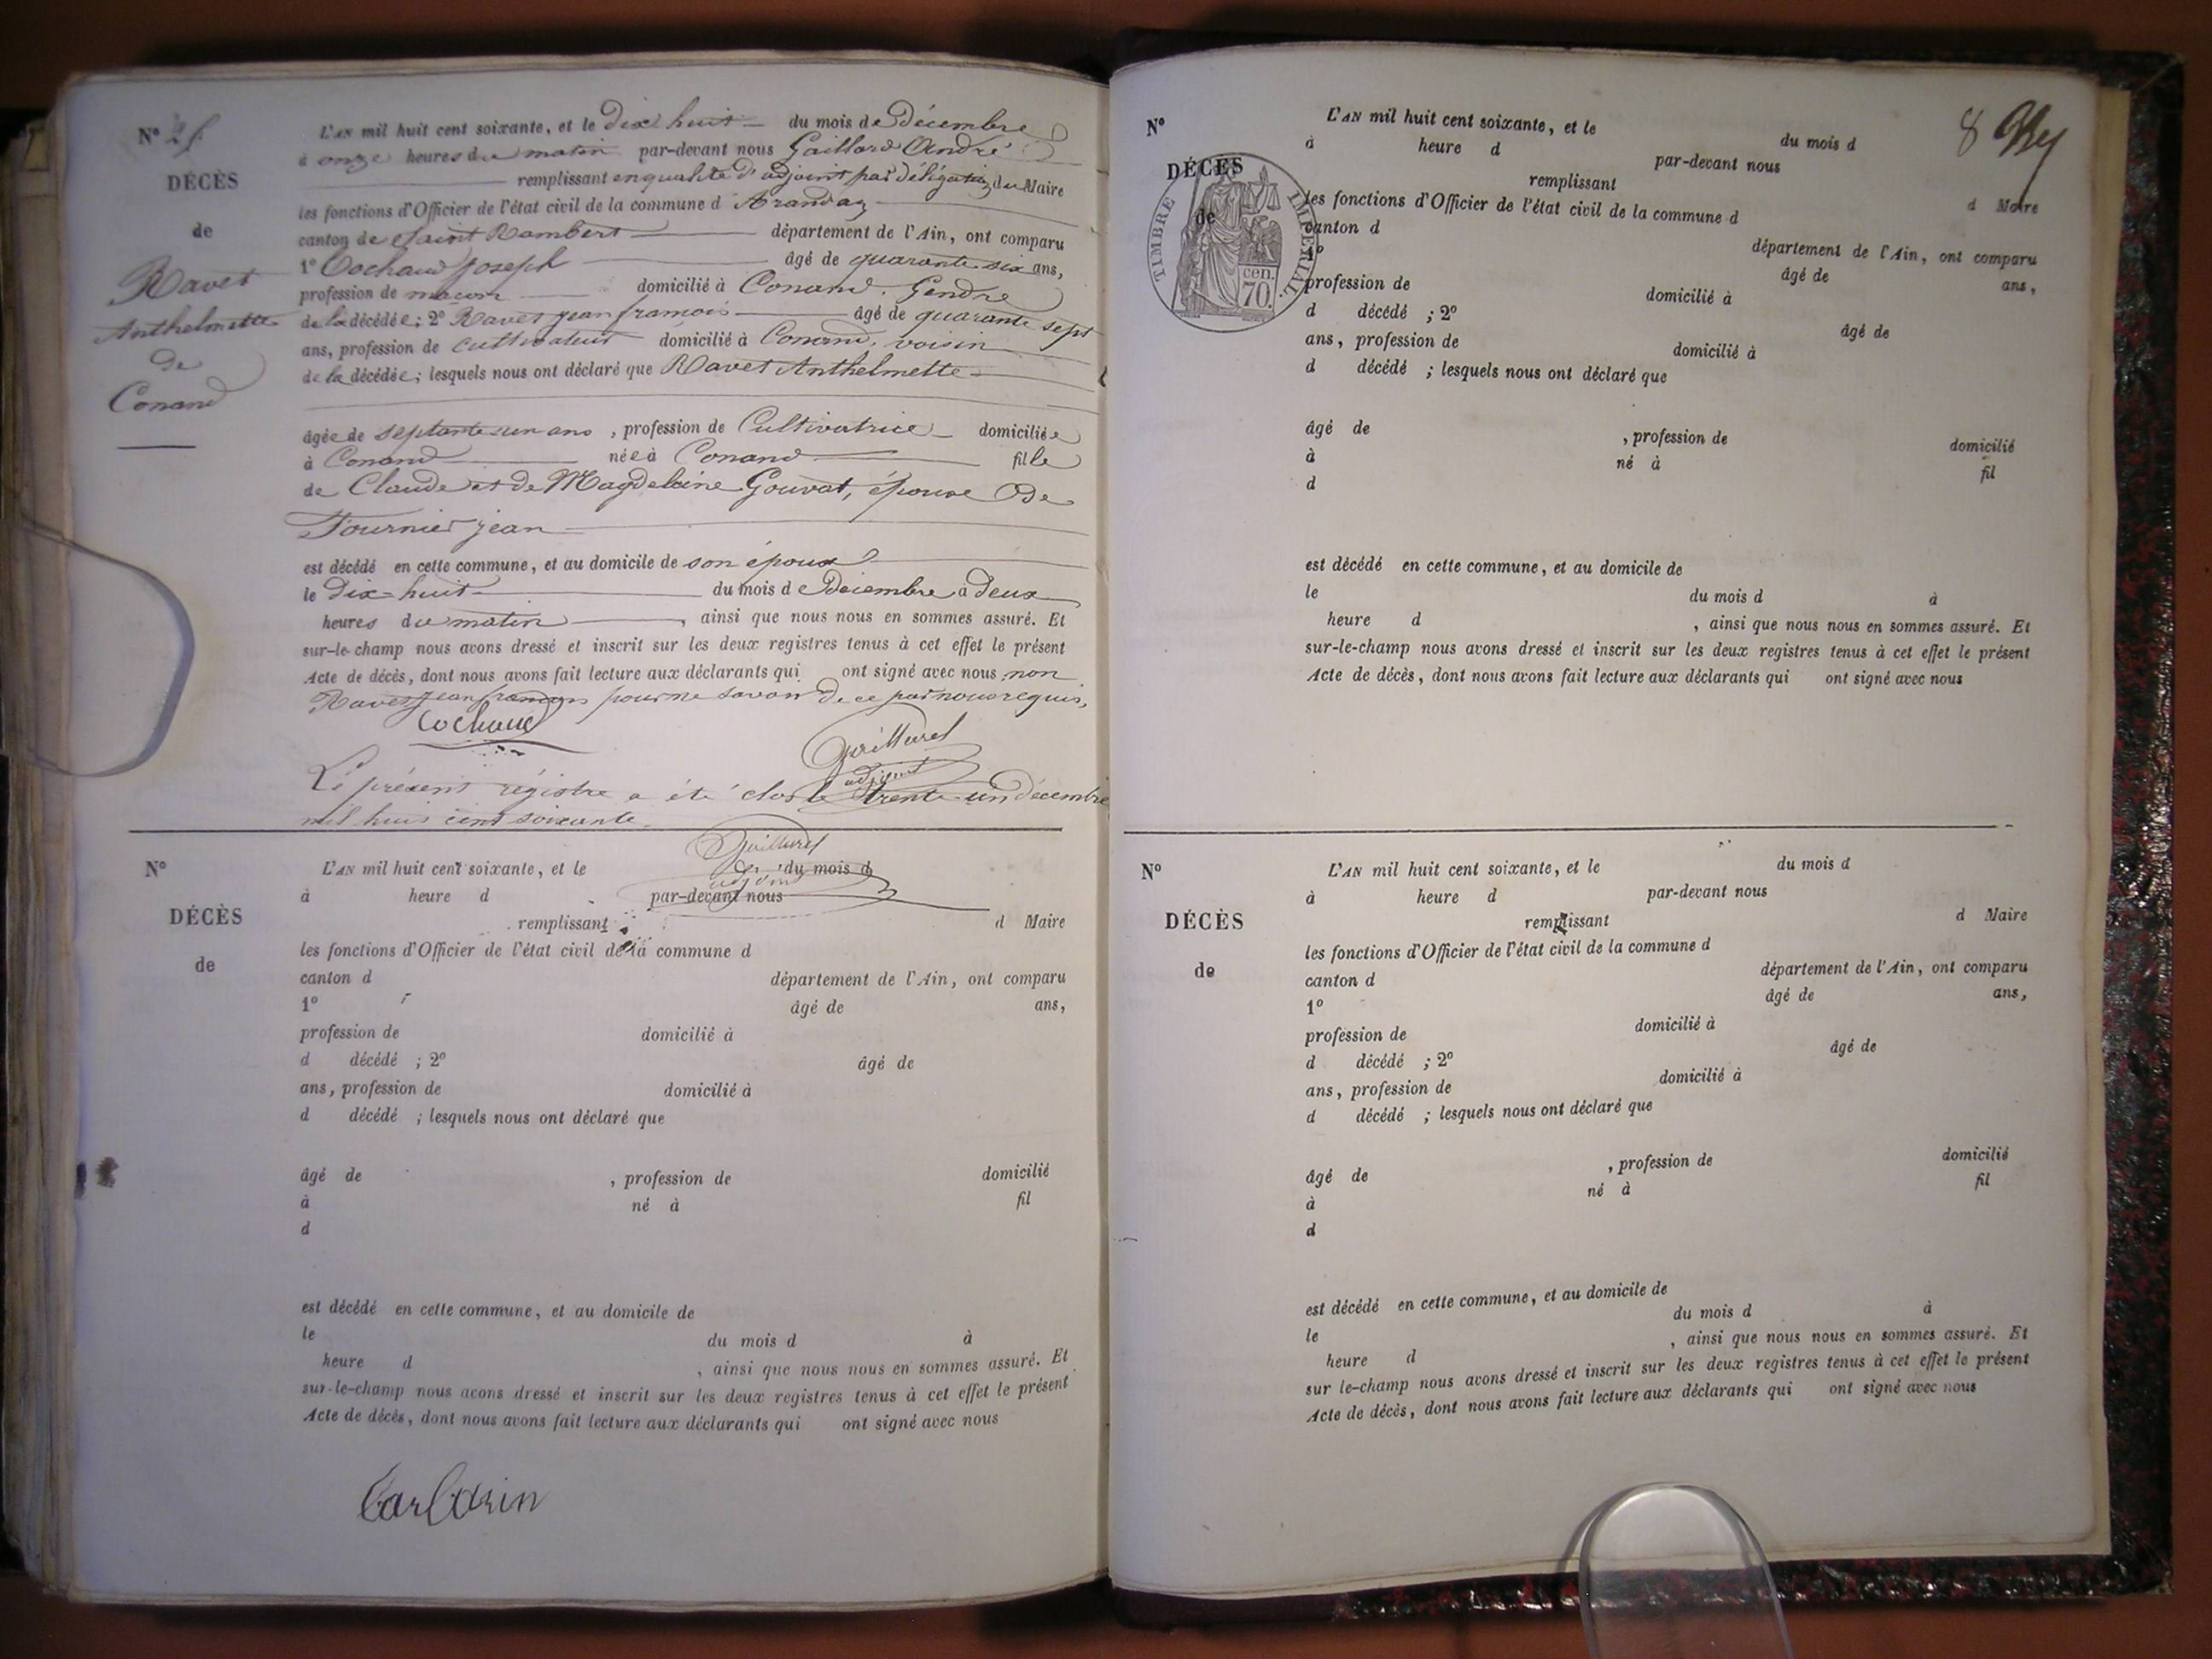 N° 25
DÉCÈS
de
Ravet
Anthelmette
de
Conand
L'AN mil huit cent soixante, et le Dix huit du mois de Décembre
à onze heures du matin par-devant nous Gaillard André
remplissant en qualité d'adjoint par déligation du Maire
les fonctions d'Officier de l'état civil de la commune d Arandaz
canton de Saint Rambert département de l'Ain, ont comparu
1° Cochaud Joseph âgé de quarante six ans,
profession de maçon domicilié à Conand. Gendre
de la décédée; 2° Ravet jean francois âgé de quarante sept
ans, profession de cultivateur domicilié à Conand. voisin
de la décédée; lesquels nous ont déclaré que Ravet Anthelmette
âgée de septante un ans , profession de Cultivatrice domiciliée
à Conand née à Conand fille
de Claude et de Magdeleine Gouvat, épouse De
Fournier jean
est décédé en cette commune, et au domicile de son époux
le Dix-huit du mois de Décembre à deux
heures du matin , ainsi que nous nous en sommes assuré. Et
sur-le-champ nous avons dressé et inscrit sur les deux registres tenus à cet effet le présent
Acte de décès, dont nous avons fait lecture aux déclarants qui ont signé avec nous non
Ravet jean francois pour ne savoir de ce par nous requis,
Cochaud
Gaillard
adjoint
Le présent régistre a été clos le trente un décembre
mil huit cent soixante.
Gaillard
adjoint
N°
DÉCÈS
de
L'AN mil huit cent soixante, et le du mois d
à heure d par-devant nous
remplissant d Maire
les fonctions d'Officier de l'état civil de la commune d
canton d département de l'Ain, ont comparu
1° âgé de ans,
profession de domicilié à
d décédé ; 2° âgé de
ans, profession de domicilié à
d décédé ; lesquels nous ont déclaré que
âgé de , profession de domicilié
à né à fil
d
est décédé en cette commune, et au domicile de
le du mois d à
heure d , ainsi que nous nous en sommes assuré. Et
sur-le-champ nous avons dressé et inscrit sur les deux registres tenus à cet effet le présent
Acte de décès, dont nous avons fait lecture aux déclarants qui ont signé avec nous
8
N°
DÉCÈS
de
TIMBRE IMPÉRIAL
70 cen.
L'AN mil huit cent soixante, et le du mois d
à heure d par-devant nous
remplissant d Maire
les fonctions d'Officier de l'état civil de la commune d
canton d département de l'Ain, ont comparu
1° âgé de ans,
profession de domicilié à
d décédé ; 2° âgé de
ans, profession de domicilié à
d décédé ; lesquels nous ont déclaré que
âgé de , profession de domicilié
à né à fil
d
est décédé en cette commune, et au domicile de
le du mois d à
heure d , ainsi que nous nous en sommes assuré. Et
sur-le-champ nous avons dressé et inscrit sur les deux registres tenus à cet effet le présent
Acte de décès, dont nous avons fait lecture aux déclarants qui ont signé avec nous
N°
DÉCÈS
de
L'AN mil huit cent soixante, et le du mois d
à heure d par-devant nous
remplissant d Maire
les fonctions d'Officier de l'état civil de la commune d
canton d département de l'Ain, ont comparu
1° âgé de ans,
profession de domicilié à
d décédé ; 2° âgé de
ans, profession de domicilié à
d décédé ; lesquels nous ont déclaré que
âgé de , profession de domicilié
à né à fil
d
est décédé en cette commune, et au domicile de
le du mois d à
heure d , ainsi que nous nous en sommes assuré. Et
sur le-champ nous avons dressé et inscrit sur les deux registres tenus à cet effet le présent
Acte de décès, dont nous avons fait lecture aux déclarants qui ont signé avec nous